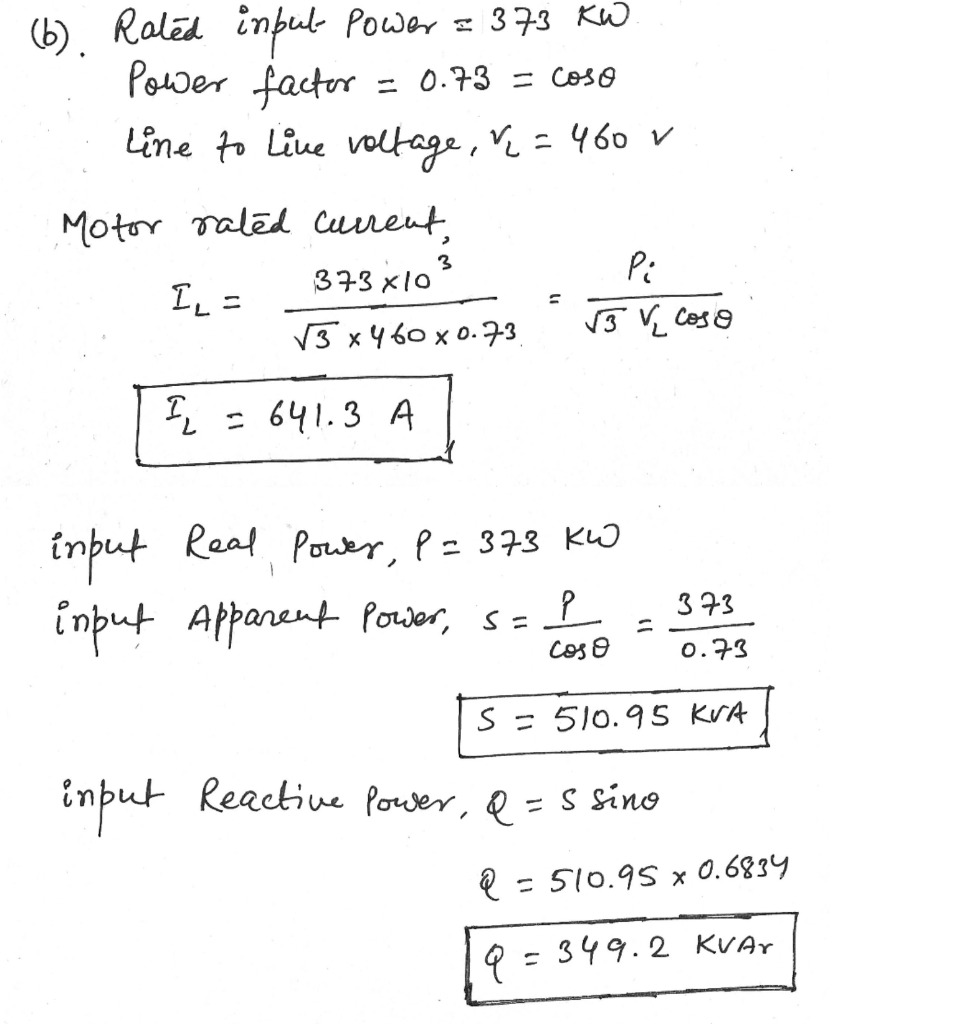 (b). Rated input Power = 373 KW
Power factor = 0.73 = cosθ
Line to Line voltage, VL = 460 V
Motor rated current,
IL = 373 x 10³ / √3 x 460 x 0.73 = Pi / √3 VL cosθ
IL = 641.3 A
input Real Power, P = 373 KW
input Apparent Power, S = P / cosθ = 373 / 0.73
S = 510.95 KVA
input Reactive Power, Q = S sinθ
Q = 510.95 x 0.6834
Q = 349.2 KVAr